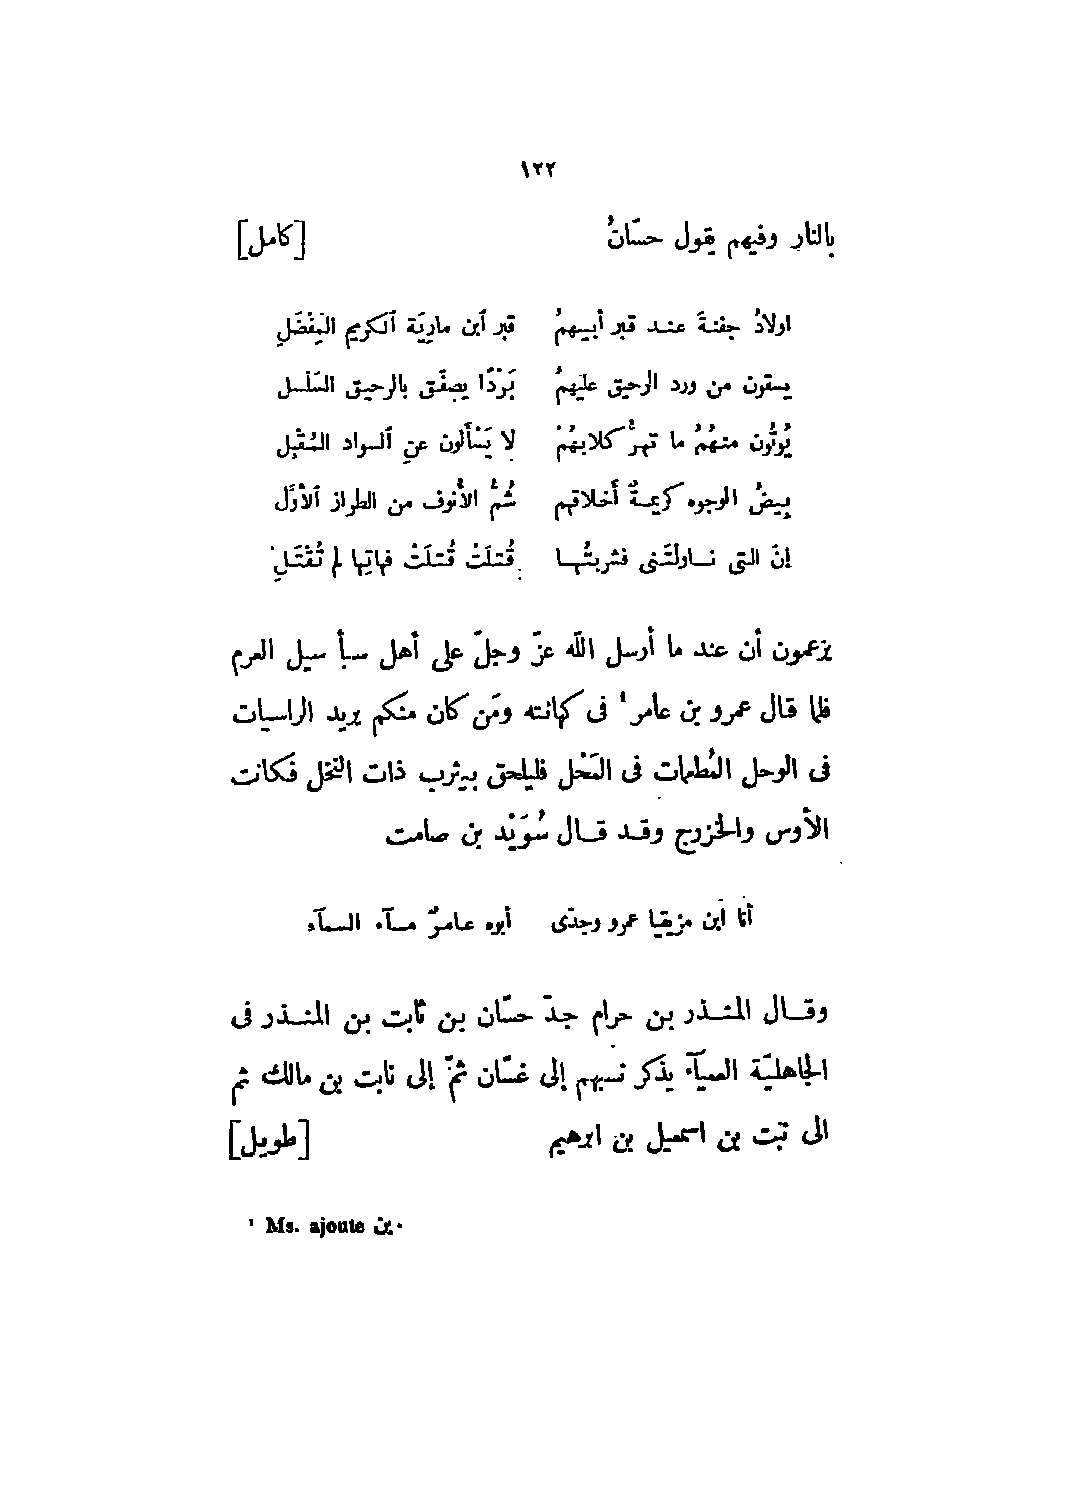 ١٢٢
بالنار وفيهم يقول حسّانُ [كامل]
اولادُ جفنةَ عند قبر أبيهمُ قبر ٱبن ماريَة ٱلكريم المِفْضَلِ
يسقون من ورد الرحيق عليهمُ بَرْدًا يصفَّق بالرحيق السَلْسل
يُوتُون منهُمُ ما تهرُّ كلابهُمْ لا يَسْألون عنِ ٱلسواد المُقْبِل
بِيضُ الوجوه كريمةٌ أخلاقهم شُمُّ الأُنوف من الطراز ٱلأوَّلِ
إنّ التى ناولْتَنى فشربتُها قُتلَتْ قُتلَتْ فهاتِها لم تُقْتَلِ
يزعمون أن عند ما أرسل اللّه عزّ وجلّ على أهل سبأ سيل العرم
فلما قال عمرو بن عامر¹ فى كهانته ومَن كان منكم يريد الراسيات
فى الوحل المُطعمات فى المَحْل فليلحق بيثرب ذات النخل فكانت
الأوس والخزرج وقد قال سُوَيْد بن صامت
أنا ٱبن مزيقيا عمرو وجدّى أبوه عامرٌ مآء السمآء
وقال المنذر بن حرام جدّ حسّان بن ثابت بن المنذر فى
الجاهليّة العميآء يذكر نسبهم إلى غسّان ثمّ إلى نابت بن مالك ثم
الى نبت بن اسمعيل بن ابرهيم [طويل]
¹ Ms. ajoute بن.